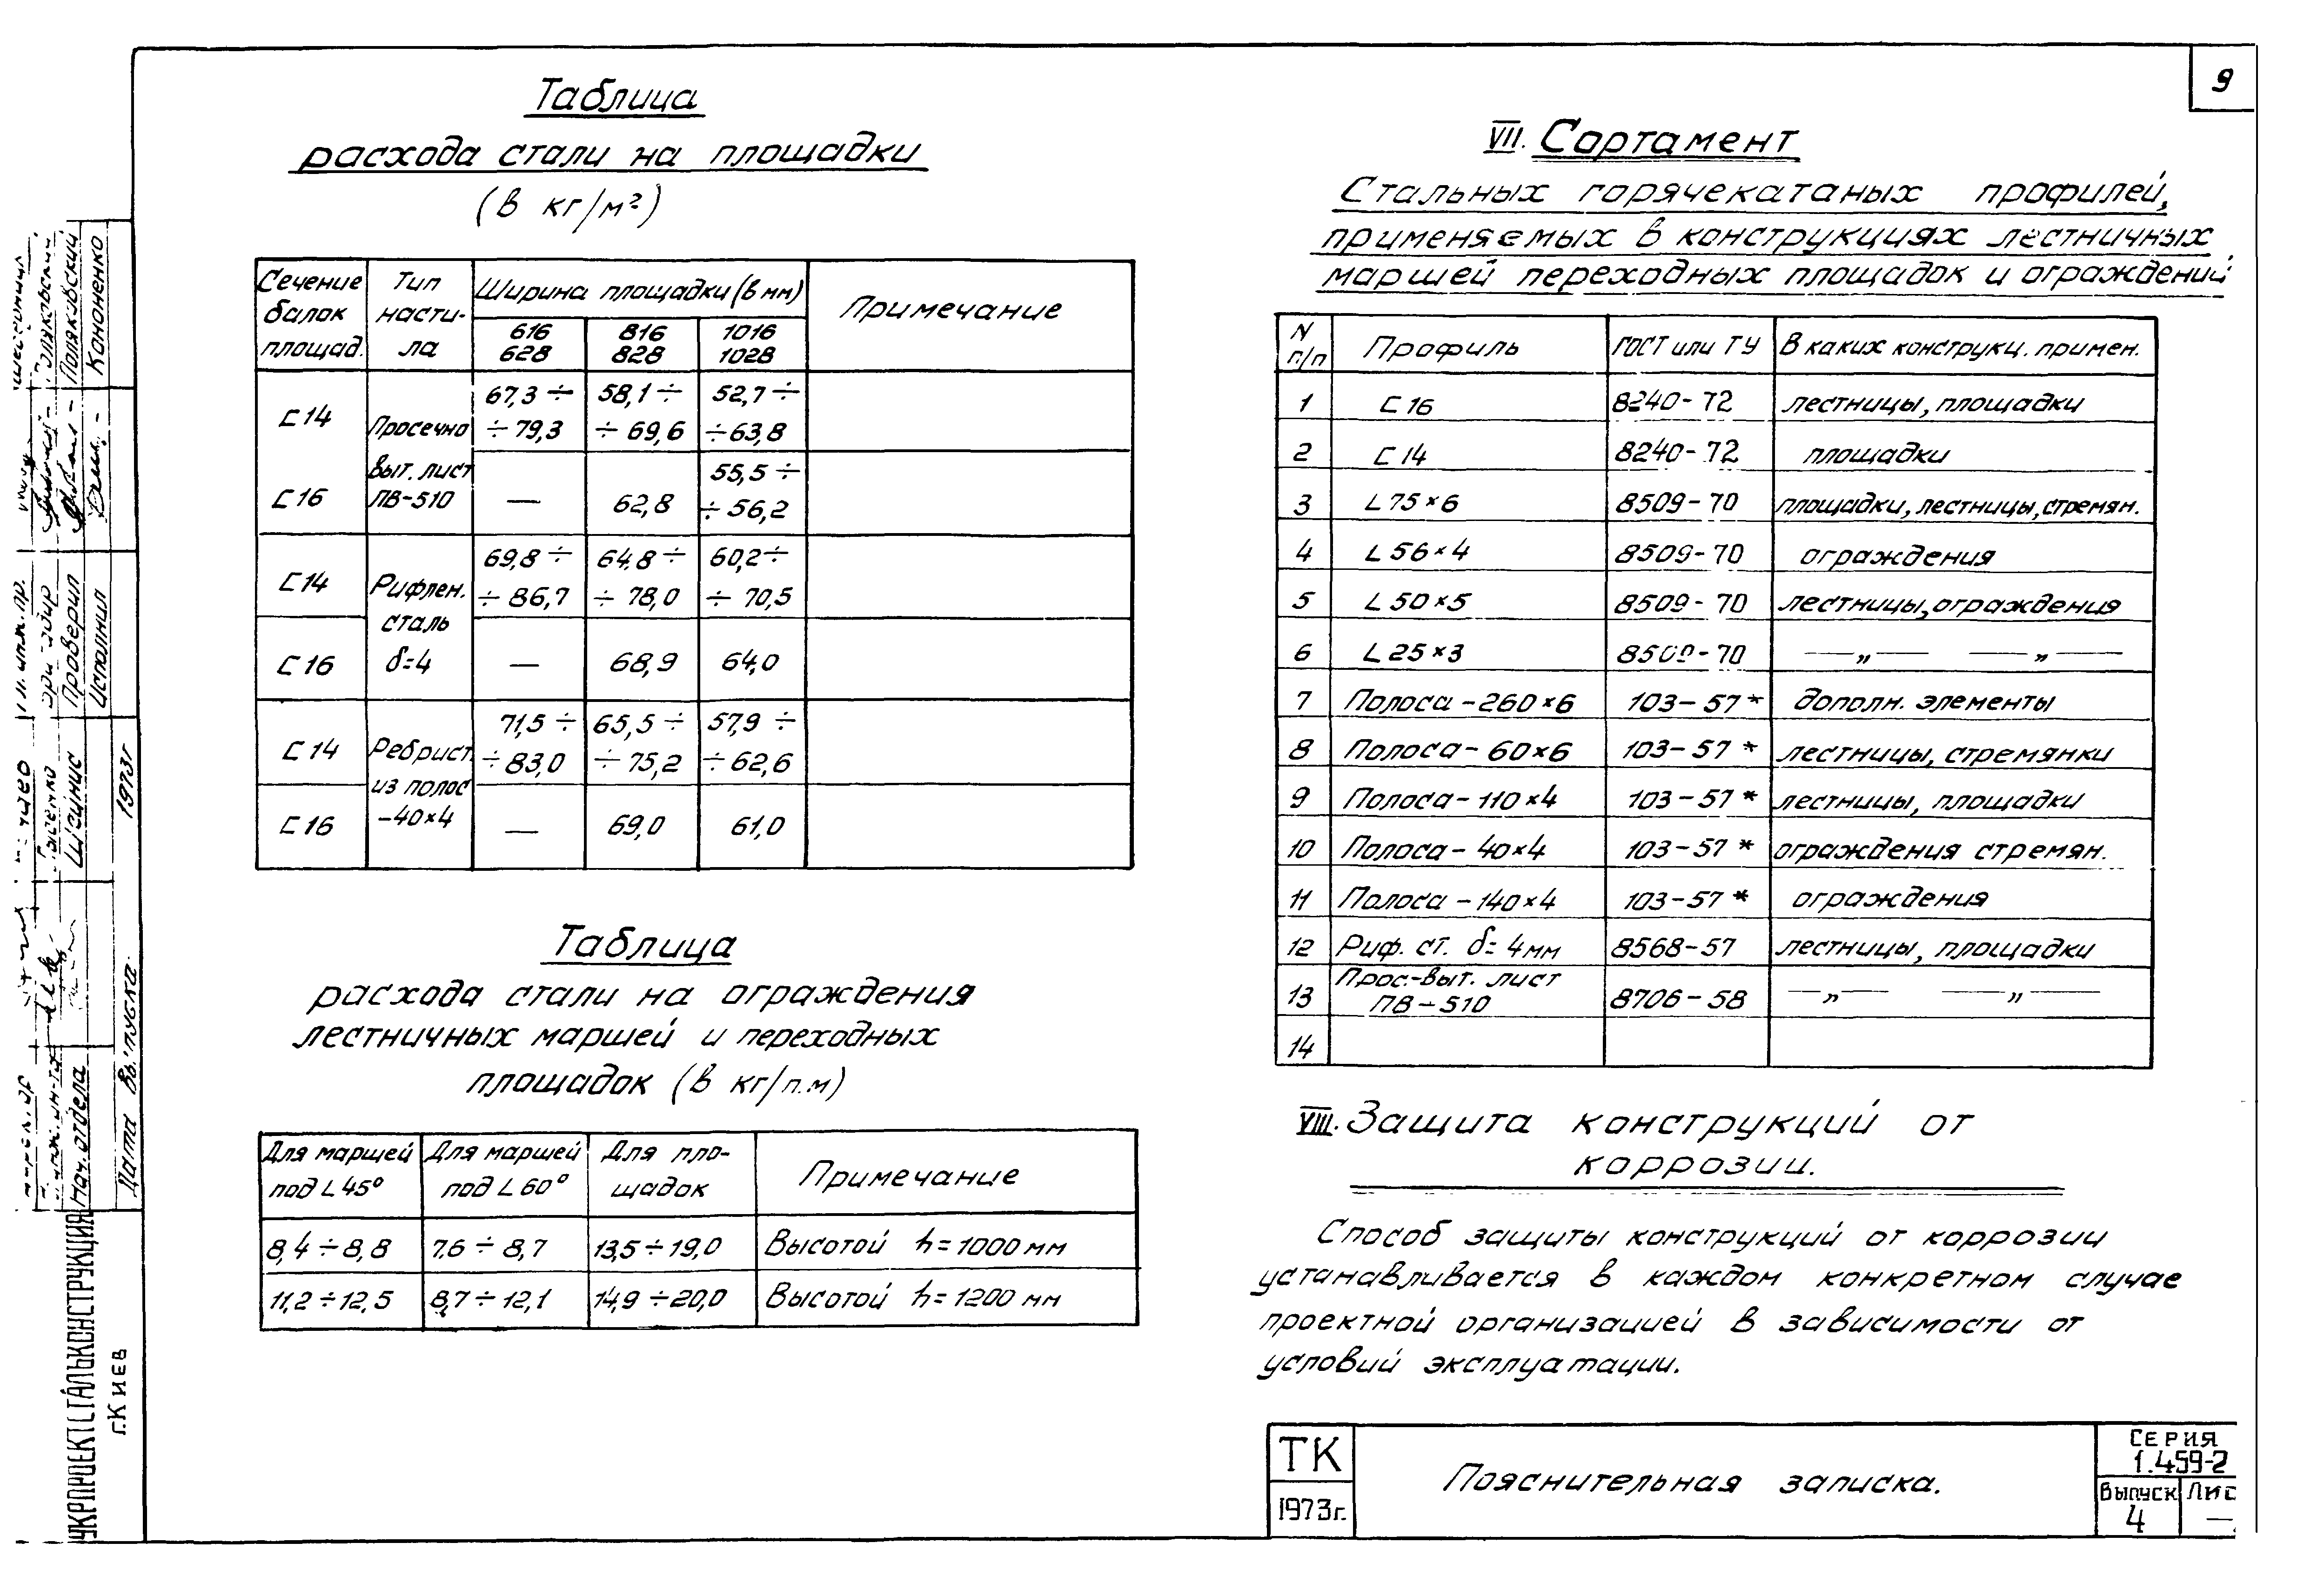 9
Таблица
расхода стали на площадки
(в кг/м²)
Сечение балок площад. | Тип насти-ла | Ширина площадки (в мм) | Примечание
616 628 | 816 828 | 1016 1028
[14 | Просечно выт. лист ПВ-510 | 67,3 ÷ ÷ 79,3 | 58,1 ÷ ÷ 69,6 | 52,7 ÷ ÷ 63,8
[16 | — | 62,8 | 55,5 ÷ ÷ 56,2
[14 | Рифлен. сталь δ=4 | 69,8 ÷ ÷ 86,7 | 64,8 ÷ ÷ 78,0 | 60,2 ÷ ÷ 70,5
[16 | — | 68,9 | 64,0
[14 | Ребрист. из полос -40×4 | 71,5 ÷ ÷ 83,0 | 65,5 ÷ ÷ 75,2 | 57,9 ÷ ÷ 62,6
[16 | — | 69,0 | 61,0
Таблица
расхода стали на ограждения
лестничных маршей и переходных
площадок (в кг/п.м)
Для маршей под ∟45° | Для маршей под ∟60° | Для пло-щадок | Примечание
8,4 ÷ 8,8 | 7.6 ÷ 8,7 | 13,5 ÷ 19,0 | Высотой h = 1000 мм
11,2 ÷ 12,5 | 8,7 ÷ 12,1 | 14,9 ÷ 20,0 | Высотой h = 1200 мм
VII. Сортамент
Стальных горячекатаных профилей,
применяемых в конструкциях лестничных
маршей переходных площадок и ограждений
N п/п | Профиль | ГОСТ или ТУ | В каких конструкц. примен.
1 | [16 | 8240-72 | лестницы, площадки
2 | [14 | 8240-72 | площадки
3 | L 75×6 | 8509-70 | площадки, лестницы, стремян.
4 | L 56×4 | 8509-70 | ограждения
5 | L 50×5 | 8509-70 | лестницы, ограждения
6 | L 25×3 | 8509-70 | —„— —„—
7 | Полоса -260×6 | 103-57* | дополн. элементы
8 | Полоса - 60×6 | 103-57* | лестницы, стремянки
9 | Полоса - 110×4 | 103-57* | лестницы, площадки
10 | Полоса - 40×4 | 103-57* | ограждения стремян.
11 | Полоса - 140×4 | 103-57* | ограждения
12 | Риф. ст. δ= 4мм | 8568-57 | лестницы, площадки
13 | Прос-выт. лист ПВ-510 | 8706-58 | —„— —„—
14
VIII. Защита конструкций от
коррозии.
Способ защиты конструкций от коррозии
устанавливается в каждом конкретном случае
проектной организацией в зависимости от
условий эксплуатации.
ТК
1973г.
Пояснительная записка.
Серия
1.459-2
Выпуск
4
Кононенко
Поляковский
Проверил
Исполнил
1973г
Нач. отдела
Дата выпуска
УКРПРОЕКТСТАЛЬКОНСТРУКЦИЯ
г.Киев